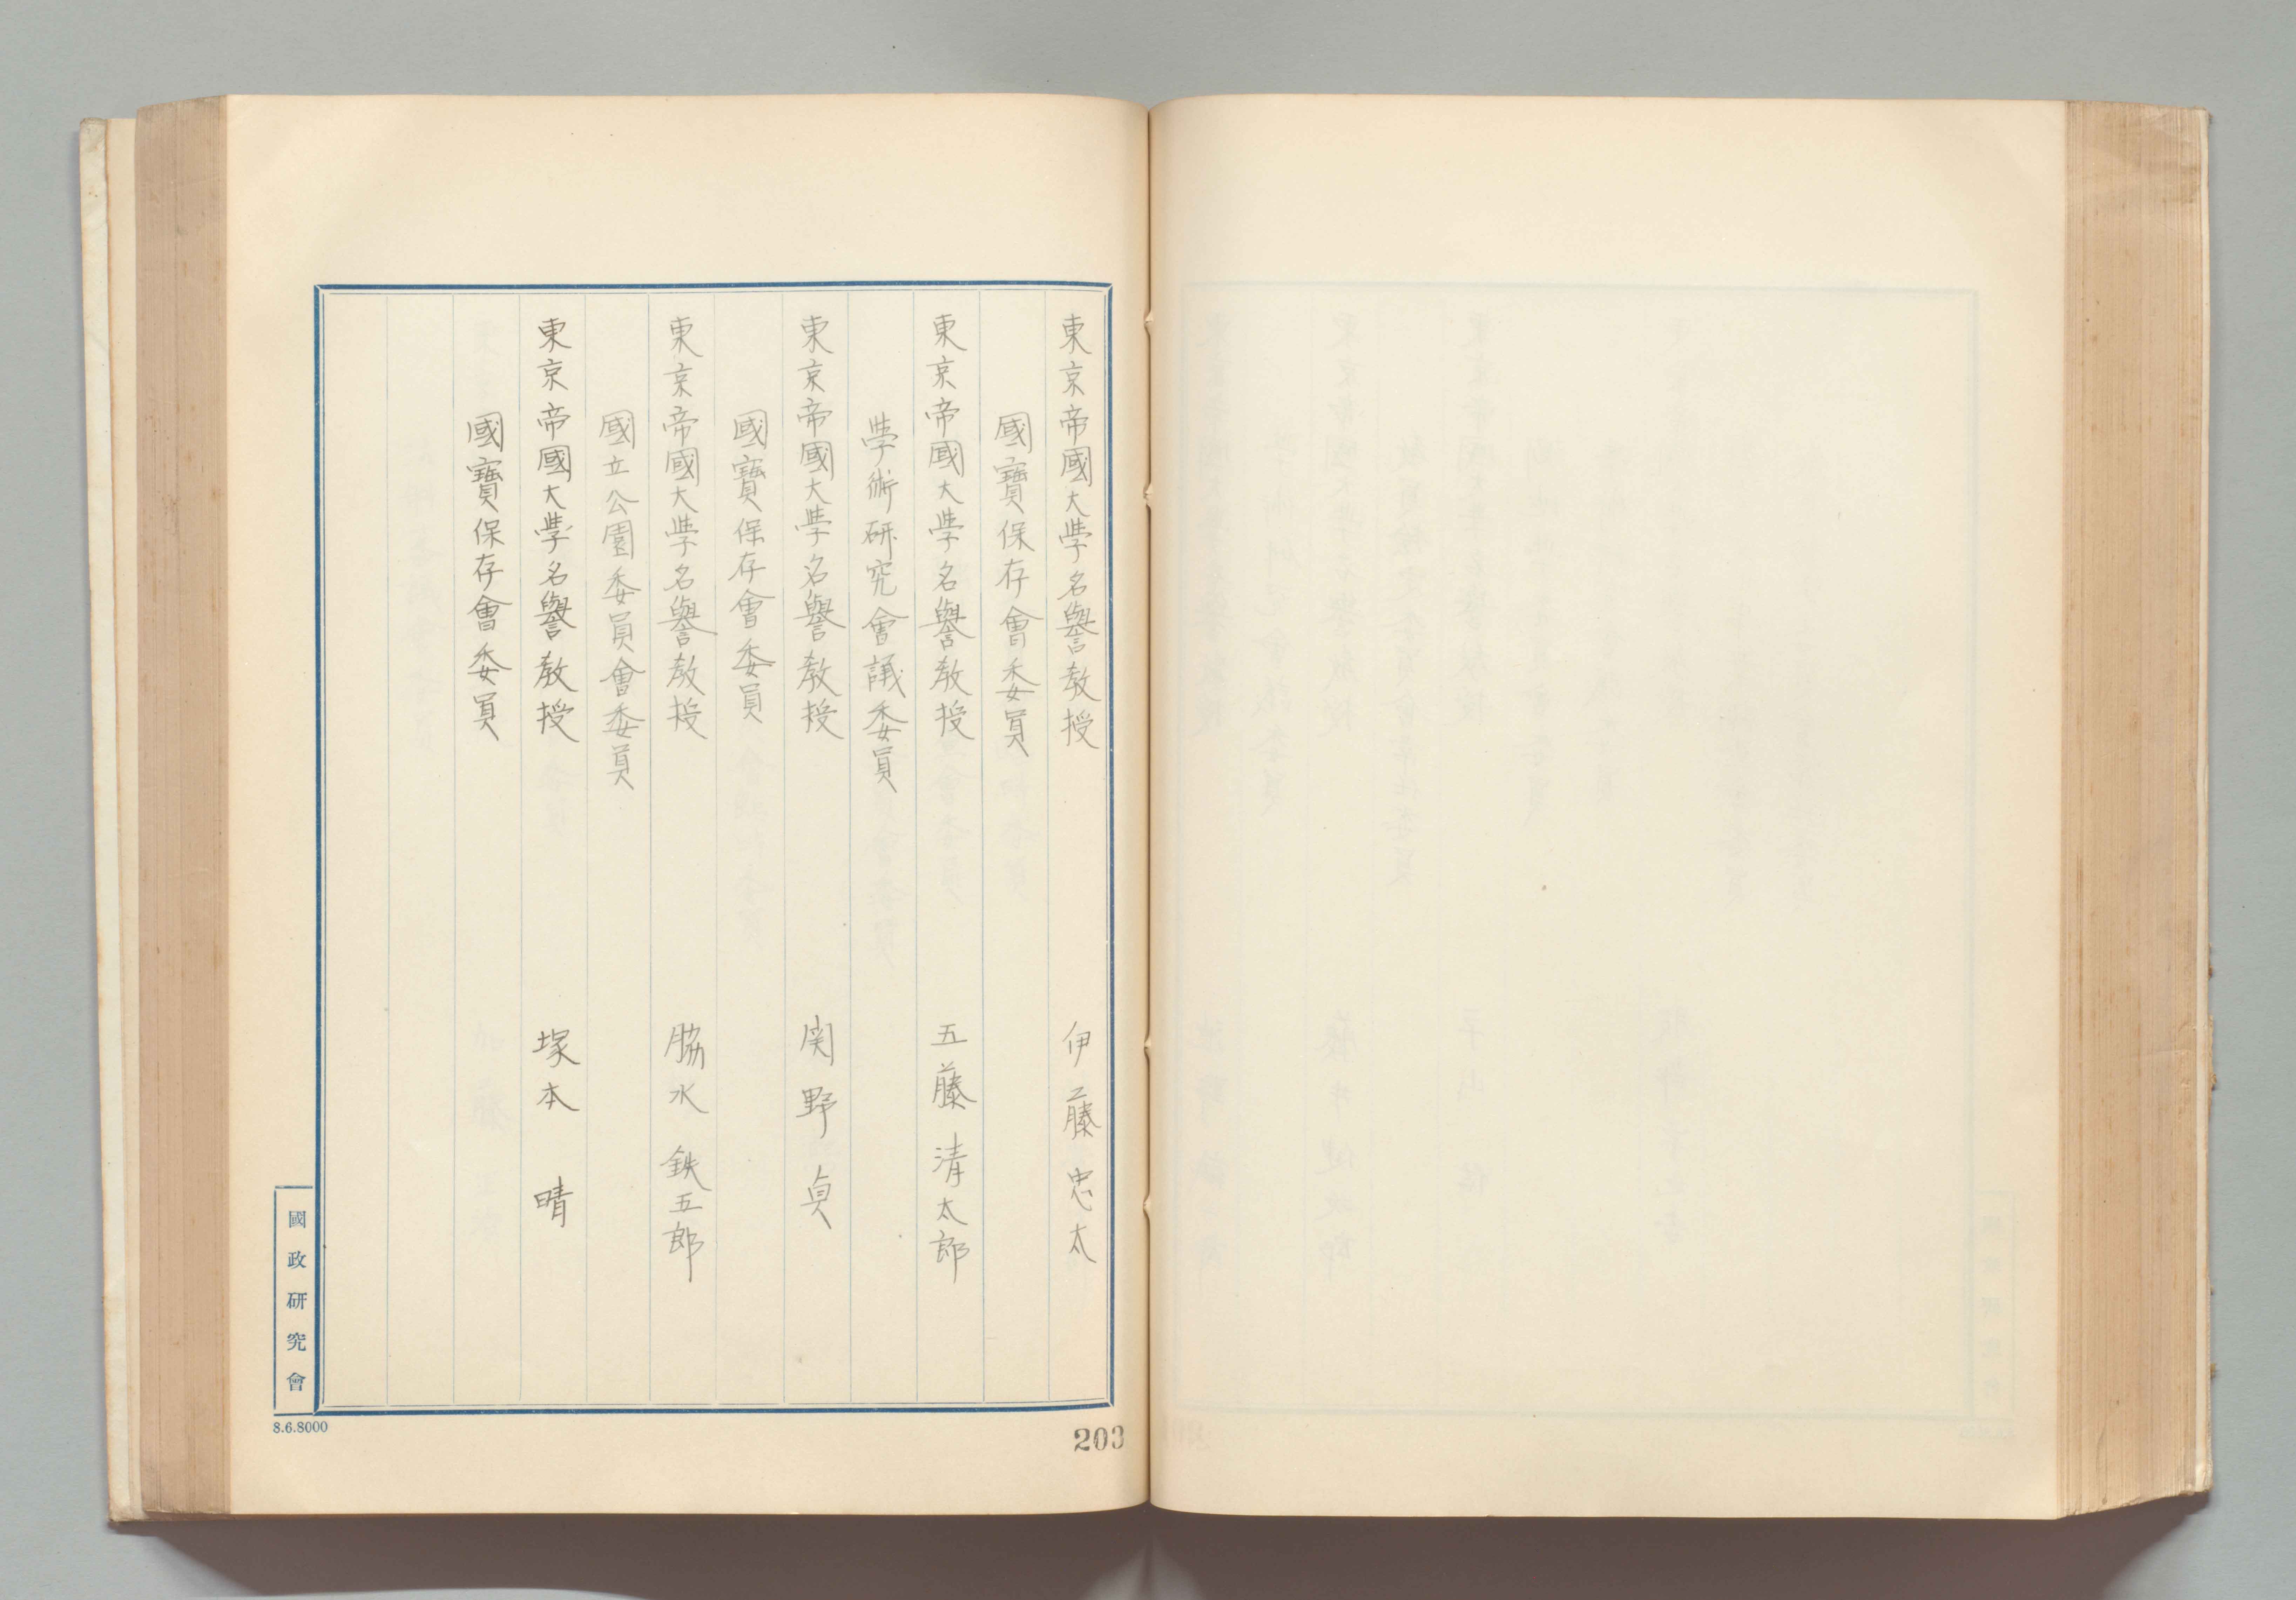 東京帝國大學名譽教授　伊藤忠太
國寶保存會委員
東京帝國大學名譽教授　五藤清太郎
學術研究會議委員
東京帝國大學名譽教授　関野貞
國寶保存會委員
東京帝國大學名譽教授　脇水鉄五郎
國立公園委員會委員
東京帝國大學名譽教授　塚本晴
國寶保存會委員
國政研究會
8.6.8000
203